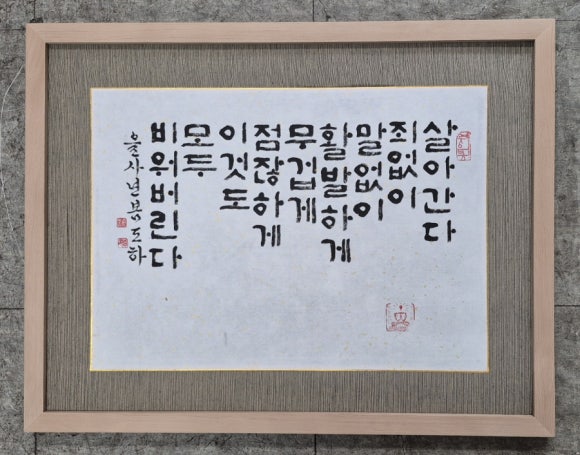 살아간다
죄없이
말없이
활발하게
무겁게
점잖하게
이것도
모두
비워버린다
을사년 봄 도하